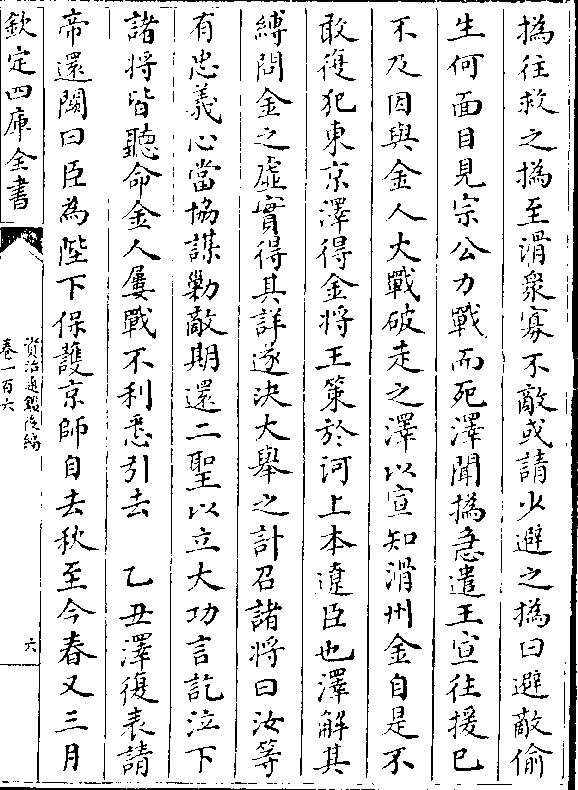 撝往救之撝至滑衆寡不敵或請少避之撝曰避敵偷
生何面目見宗公力戰而死澤聞撝急遣王宣往援已
不及因與金人大戰破走之澤以宣知滑州金自是不
敢復犯東京澤得金將王策於河上本遼臣也澤解其
縛問金之虛實得其詳遂决大舉之計召諸將曰汝等
有忠義心當協謀勦敵期還二聖以立大功言訖泣下
諸將皆聽命金人屢戰不利悉引去　乙丑澤復表請
帝還闕曰臣為陛下保護京師自去秋至今春又三月
欽定四庫全書
資治通鑑後編
卷一百六
六